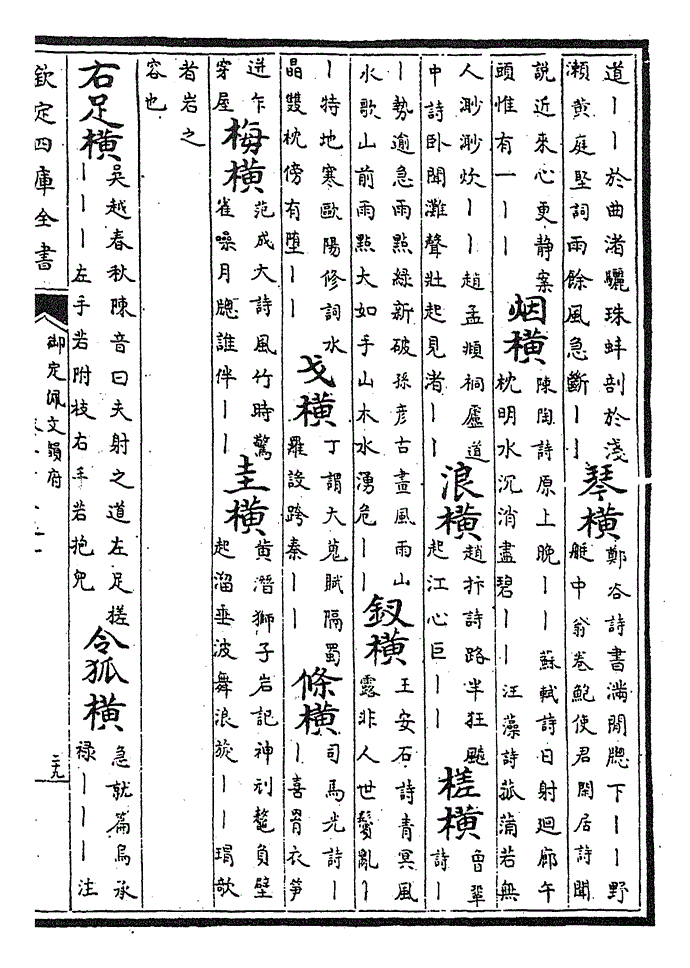 道丨丨於曲渚驪珠蚌剖於淺
瀨黃庭堅詞雨餘風急斷丨丨
琴橫
鄭谷詩書滿閒牕下丨丨野
艇中翁卷鮑使君閒居詩聞
說近來心更静案
頭惟有一丨丨
烟橫
陳陶詩原上晚丨丨蘇軾詩日射迴廊午
枕明水沉消盡碧丨丨汪藻詩菰蒲若無
人渺渺炊丨丨趙孟頫祠廬道
中詩卧聞灘聲壯起見渚丨丨
浪橫
趙抃詩路半狂飈
起江心巨丨丨
槎橫
曾鞏
詩丨
丨勢逾急雨點綠新破孫彦古畫風雨山
水歌山前雨點大如手山木水湧危丨丨
釵橫
王安石詩青冥風
露非人世鬢亂丨
丨特地寒歐陽修詞水
晶雙枕傍有墮丨丨
戈橫
丁謂大蒐賦隔蜀
羅設跨秦丨丨
條橫
司馬光詩丨
丨喜罥衣笋
迸乍
穿屋
梅橫
范成大詩風竹時驚
雀噪月牕誰伴丨丨
圭橫
黃潛獅子岩記神刓鼇負壁
起溜垂波舞浪旋丨丨瑁欹
者岩之
容也
右足橫
吳越春秋陳音曰夫射之道左足槎
丨丨丨左手若附枝右手若抱兒
令狐橫
急就篇烏承
祿丨丨丨注
欽定四庫全書
御定佩文韻府
二十九